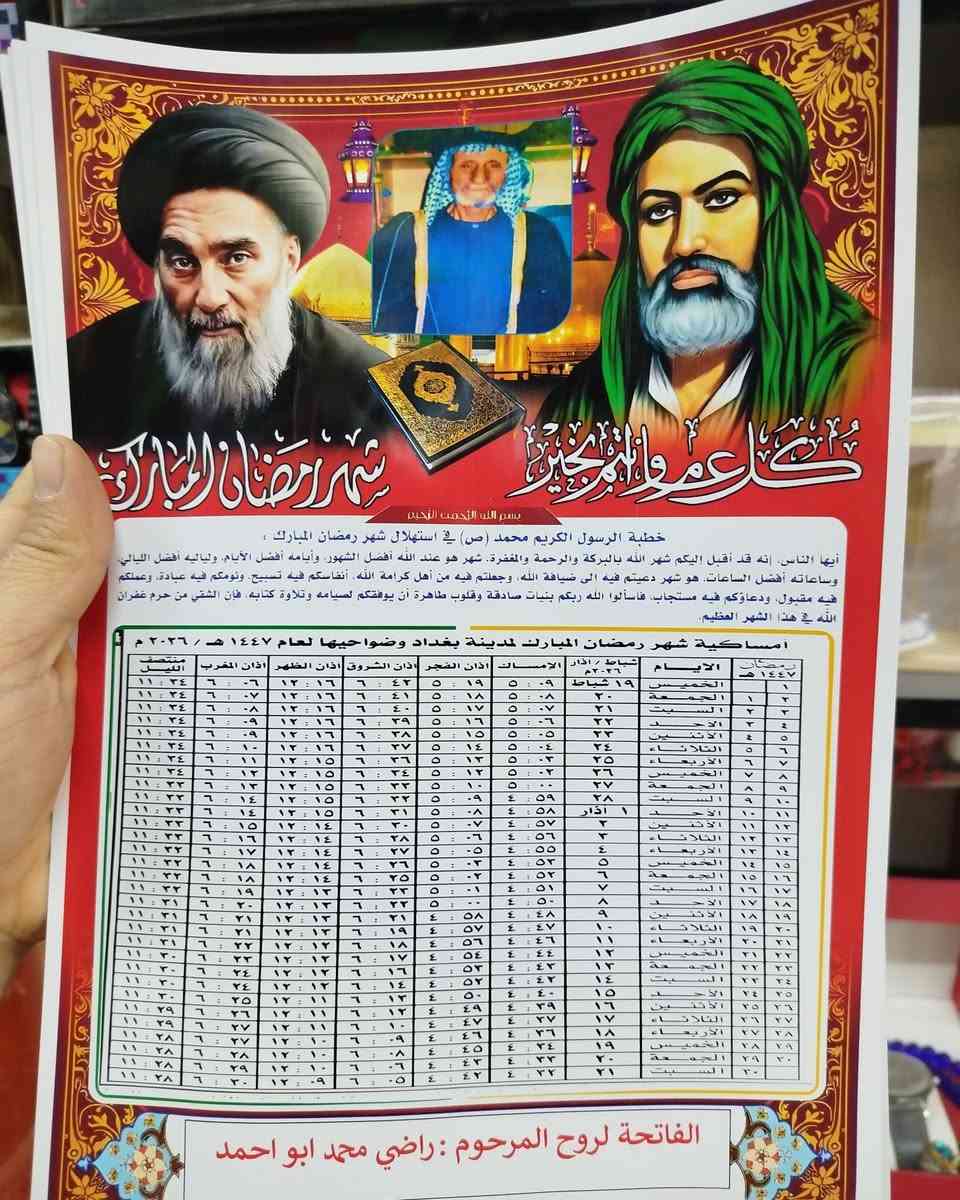 كل عام وانتم بخير
شهر رمضان المبارك
بسم الله الرحمن الرحيم
خطبة الرسول الكريم محمد (ص) في استهلال شهر رمضان المبارك :
أيها الناس، إنه قد أقبل إليكم شهر الله بالبركة والرحمة والمغفرة، شهر هو عند الله أفضل الشهور، وأيامه أفضل الأيام، ولياليه أفضل الليالي،
وساعاته أفضل الساعات، هو شهر دعيتم فيه الى ضيافة الله، وجعلتم فيه من أهل كرامة الله، أنفاسكم فيه تسبيح، ونومكم فيه عبادة، وعملكم
فيه مقبول، ودعاؤكم فيه مستجاب، فاسألوا الله ربكم بنيات صادقة وقلوب طاهرة أن يوفقكم لصيامه وتلاوة كتابه، فإن الشقي من حرم غفران
الله في هذا الشهر العظيم.
امساكية شهر رمضان المبارك لمدينة بغداد وضواحيها لعام ١٤٤٧ هـ / ٢٠٢٦ م
رمضان ١٤٤٧ هـ الايام شباط / اذار ٢٠٢٦م الإمساك اذان الفجر اذان الشروق اذان الظهر اذان المغرب منتصف الليل
١ الخميس ١٩ شباط ٥ : ٠٩ ٥ : ١٩ ٦ : ٤٢ ١٢ : ١٦ ٦ : ٠٦ ١١ : ٣٤
٢ ١ الجمعة ٢٠ ٥ : ٠٨ ٥ : ١٨ ٦ : ٤١ ١٢ : ١٦ ٦ : ٠٧ ١١ : ٣٤
٣ ٢ السبت ٢١ ٥ : ٠٧ ٥ : ١٧ ٦ : ٤٠ ١٢ : ١٦ ٦ : ٠٨ ١١ : ٣٤
٤ ٣ الاحد ٢٢ ٥ : ٠٦ ٥ : ١٦ ٦ : ٣٩ ١٢ : ١٦ ٦ : ٠٩ ١١ : ٣٤
٥ ٤ الاثنين ٢٣ ٥ : ٠٥ ٥ : ١٥ ٦ : ٣٨ ١٢ : ١٦ ٦ : ٠٩ ١١ : ٣٤
٦ ٥ الثلاثاء ٢٤ ٥ : ٠٤ ٥ : ١٤ ٦ : ٣٧ ١٢ : ١٦ ٦ : ١٠ ١١ : ٣٤
٧ ٦ الأربعاء ٢٥ ٥ : ٠٣ ٥ : ١٣ ٦ : ٣٦ ١٢ : ١٥ ٦ : ١١ ١١ : ٣٤
٨ ٧ الخميس ٢٦ ٥ : ٠٢ ٥ : ١٢ ٦ : ٣٤ ١٢ : ١٥ ٦ : ١٢ ١١ : ٣٤
٩ ٨ الجمعة ٢٧ ٥ : ٠٠ ٥ : ١٠ ٦ : ٣٣ ١٢ : ١٥ ٦ : ١٣ ١١ : ٣٣
١٠ ٩ السبت ٢٨ ٤ : ٥٩ ٥ : ٠٩ ٦ : ٣٢ ١٢ : ١٥ ٦ : ١٤ ١١ : ٣٣
١١ ١٠ الاحد ١ اذار ٤ : ٥٨ ٥ : ٠٨ ٦ : ٣١ ١٢ : ١٥ ٦ : ١٤ ١١ : ٣٣
١٢ ١١ الاثنين ٢ ٤ : ٥٧ ٥ : ٠٧ ٦ : ٣٠ ١٢ : ١٤ ٦ : ١٥ ١١ : ٣٣
١٣ ١٢ الثلاثاء ٣ ٤ : ٥٦ ٥ : ٠٦ ٦ : ٢٨ ١٢ : ١٤ ٦ : ١٦ ١١ : ٣٣
١٤ ١٣ الأربعاء ٤ ٤ : ٥٥ ٥ : ٠٥ ٦ : ٢٧ ١٢ : ١٤ ٦ : ١٧ ١١ : ٣٣
١٥ ١٤ الخميس ٥ ٤ : ٥٣ ٥ : ٠٣ ٦ : ٢٦ ١٢ : ١٤ ٦ : ١٨ ١١ : ٣٢
١٦ ١٥ الجمعة ٦ ٤ : ٥٢ ٥ : ٠٢ ٦ : ٢٥ ١٢ : ١٤ ٦ : ١٨ ١١ : ٣٢
١٧ ١٦ السبت ٧ ٤ : ٥١ ٥ : ٠١ ٦ : ٢٣ ١٢ : ١٣ ٦ : ١٩ ١١ : ٣٢
١٨ ١٧ الاحد ٨ ٤ : ٥٠ ٥ : ٠٠ ٦ : ٢٢ ١٢ : ١٣ ٦ : ٢٠ ١١ : ٣١
١٩ ١٨ الاثنين ٩ ٤ : ٤٨ ٤ : ٥٨ ٦ : ٢١ ١٢ : ١٣ ٦ : ٢١ ١١ : ٣١
٢٠ ١٩ الثلاثاء ١٠ ٤ : ٤٧ ٤ : ٥٧ ٦ : ١٩ ١٢ : ١٣ ٦ : ٢١ ١١ : ٣١
٢١ ٢٠ الأربعاء ١١ ٤ : ٤٦ ٤ : ٥٦ ٦ : ١٨ ١٢ : ١٢ ٦ : ٢٢ ١١ : ٣١
٢٢ ٢١ الخميس ١٢ ٤ : ٤٤ ٤ : ٥٤ ٦ : ١٧ ١٢ : ١٢ ٦ : ٢٣ ١١ : ٣٠
٢٣ ٢٢ الجمعة ١٣ ٤ : ٤٣ ٤ : ٥٣ ٦ : ١٦ ١٢ : ١٢ ٦ : ٢٤ ١١ : ٣٠
٢٤ ٢٣ السبت ١٤ ٤ : ٤٢ ٤ : ٥٢ ٦ : ١٤ ١٢ : ١٢ ٦ : ٢٤ ١١ : ٣٠
٢٥ ٢٤ الاحد ١٥ ٤ : ٤٠ ٤ : ٥٠ ٦ : ١٣ ١٢ : ١١ ٦ : ٢٥ ١١ : ٣٠
٢٦ ٢٥ الاثنين ١٦ ٤ : ٣٩ ٤ : ٤٩ ٦ : ١٢ ١٢ : ١١ ٦ : ٢٦ ١١ : ٢٩
٢٧ ٢٦ الثلاثاء ١٧ ٤ : ٣٧ ٤ : ٤٧ ٦ : ١٠ ١٢ : ١١ ٦ : ٢٧ ١١ : ٢٩
٢٨ ٢٧ الأربعاء ١٨ ٤ : ٣٦ ٤ : ٤٦ ٦ : ٠٩ ١٢ : ١٠ ٦ : ٢٧ ١١ : ٢٨
٢٩ ٢٨ الخميس ١٩ ٤ : ٣٤ ٤ : ٤٥ ٦ : ٠٨ ١٢ : ١٠ ٦ : ٢٨ ١١ : ٢٨
٣٠ ٢٩ الجمعة ٢٠ ٤ : ٣٣ ٤ : ٤٣ ٦ : ٠٦ ١٢ : ١٠ ٦ : ٢٩ ١١ : ٢٨
٣٠ السبت ٢١ ٤ : ٣٢ ٤ : ٤٢ ٦ : ٠٥ ١٢ : ٠٩ ٦ : ٣٠ ١١ : ٢٨
الفاتحة لروح المرحوم : راضي محمد ابو احمد